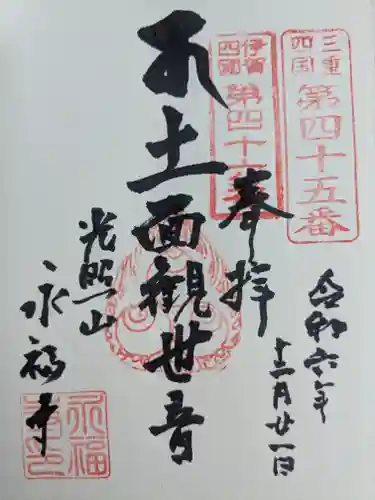 三重
四国
第四十五番
伊賀
四国
第四十
奉拝
令和六年
十二月廿一日
土面観世音
光照山
永福寺
永福
寺印